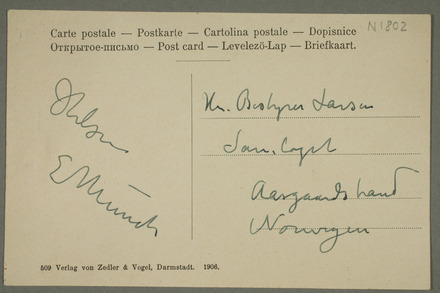 N 1802
Carte postale — Postkarte — Cartolina postale — Dopisnice
Открытое-письмо — Post card — Levelező-Lap — Briefkaart.
Hilsen
E Munch
Hr. Bestyrer Larsen
Aasgaardstrand
Norwegen
509 Verlag von Zedler & Vogel, Darmstadt. 1906.